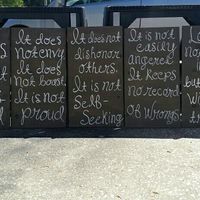 It does
not envy
It does
not boast
It is not
proud
It does not
dishonor
others.
It is not
Self-
Seeking
It is not
easily
angered
It keeps
no record
of wrongs.